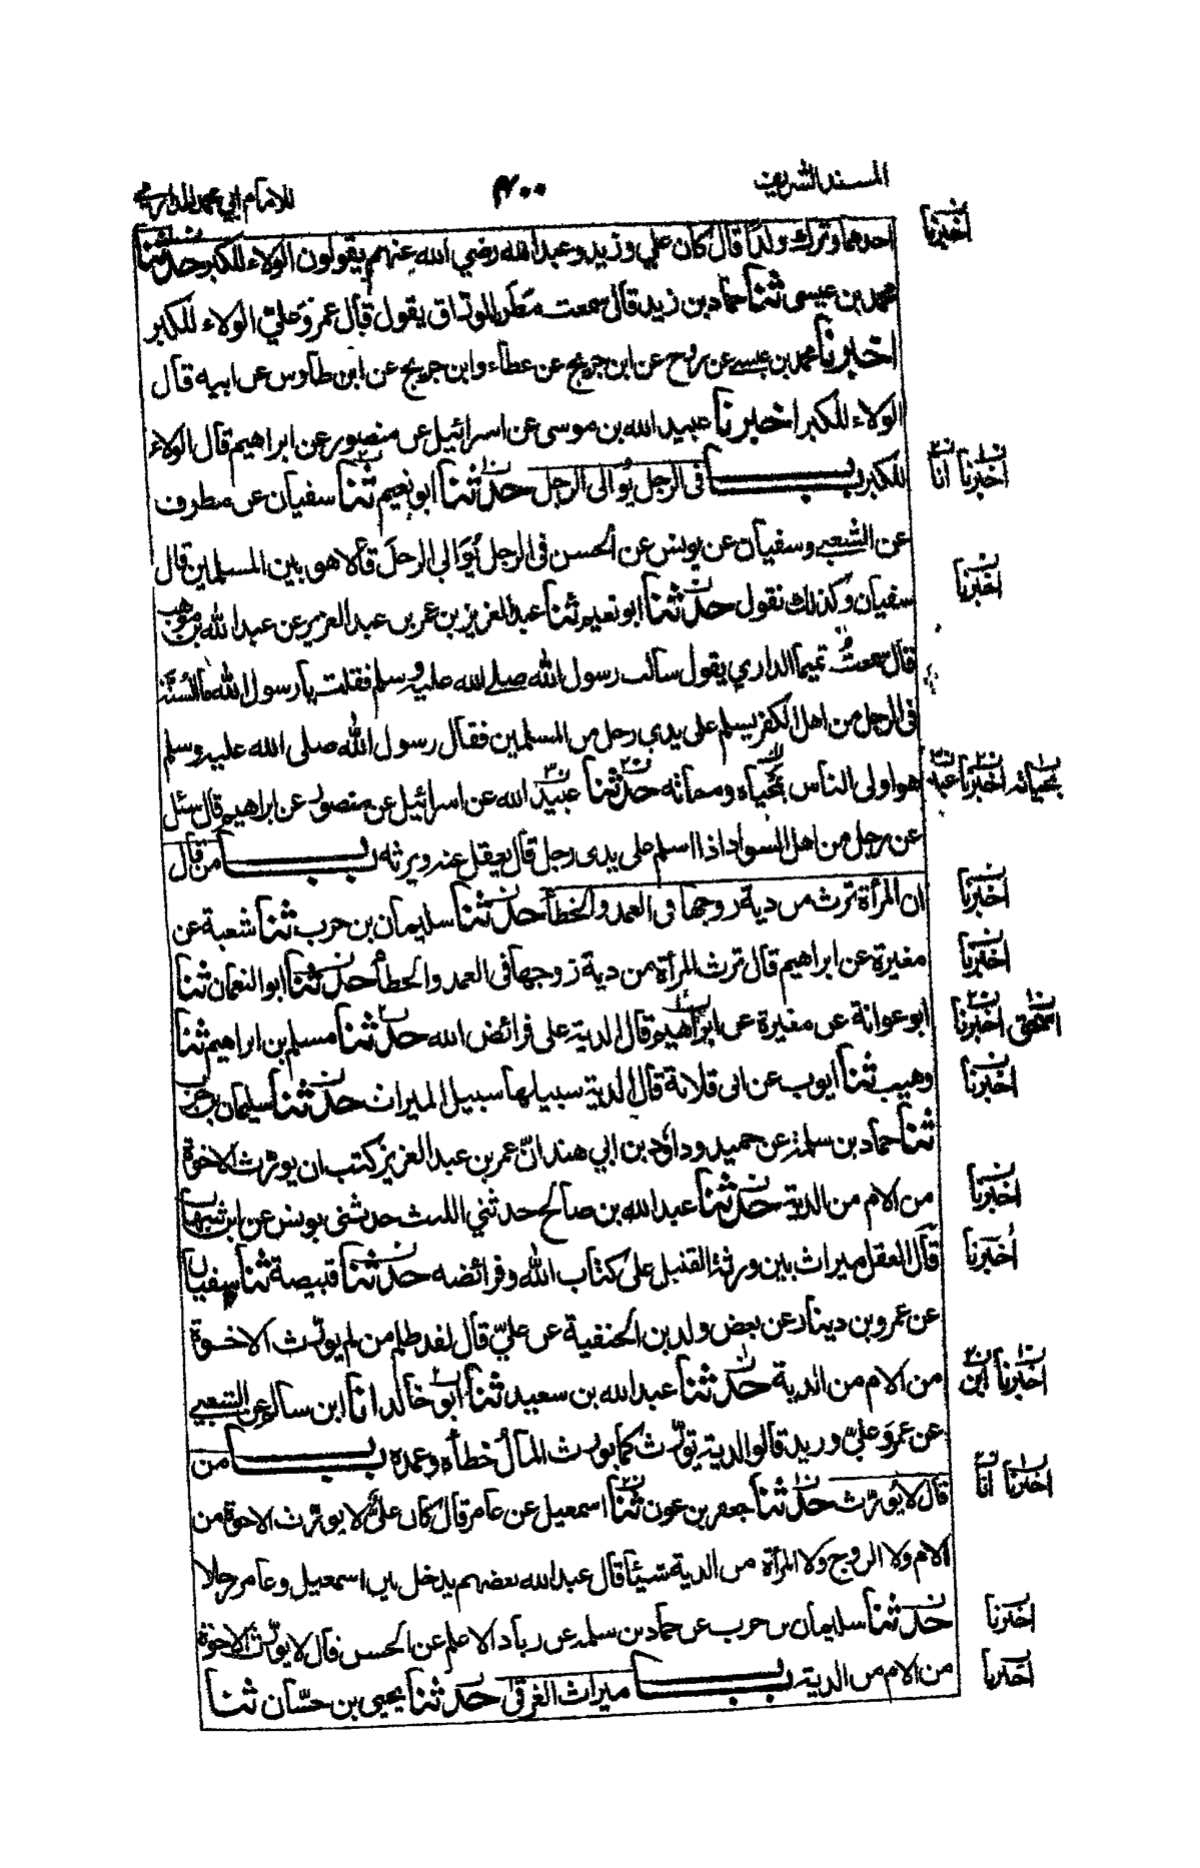 المسند الشريف
٤٠٠
للامام ابي محمد الدارمي
احدهما وترك ولدًا قال كان علي وزيد وعبد الله رضي الله عنهم يقولون الولاء للكبر حدثنا
محمد بن عيسى ثنا حماد بن زيد قال سمعت مطر الوراق يقول قال عمر وعلي الولاء للكبر
اخبرنا محمد بن عيسى عن روح عن ابن جريج عن عطاء وابن جريج عن ابن طاوس عن ابيه قال
الولاء للكبر اخبرنا عبيد الله بن موسى عن اسرائيل عن منصور عن ابراهيم قال الولاء
للكبر باب في الرجل يوالى الرجل حدثنا ابو نعيم ثنا سفيان عن مطرف
عن الشعبي وسفيان عن يونس عن الحسن في الرجل يُوَالي الرجل قالا هو بين المسلمين قال
سفيان وكذلك نقول حدثنا ابو نعيم ثنا عبد العزيز بن عمر بن عبد العزيز عن عبد الله بن موهب
قال سمعت تميما الداري يقول سألت رسول الله صلى الله عليه وسلم فقلت يا رسول الله ما السنة
في الرجل من اهل الكفر يسلم على يدي رجل من المسلمين فقال رسول الله صلى الله عليه وسلم
هو اولى الناس بمحياه ومماته حدثنا عبيد الله عن اسرائيل عن منصور عن ابراهيم قال سئل
عن رجل من اهل السواد اذا اسلم على يدى رجل قال يعقل عنه ويرثه باب من قال
ان المرأة ترث من دية زوجها في العمد والخطأ حدثنا سليمان بن حرب ثنا شعبة عن
مغيرة عن ابراهيم قال ترث المرأة من دية زوجها في العمد والخطأ حدثنا ابو النعمان ثنا
ابو عوانة عن مغيرة عن ابراهيم قال الدية على فرائض الله حدثنا مسلم بن ابراهيم ثنا
وهيب ثنا ايوب عن ابى قلابة قال الدية سبيلها سبيل الميراث حدثنا سليمان بن حرب
ثنا حماد بن سلمة عن حميد وداؤد بن ابي هند انّ عمر بن عبد العزيز كتب ان يورّث الاخوة
من الام من الدية حدثنا عبد الله بن صالح حدثني الليث حدثنى يونس عن ابن شهاب
قال العقل ميراث بين ورثة القتيل على كتاب الله وفرائضه حدثنا قبيصة ثنا سفيان
عن عمرو بن دينار عن بعض ولد بن الحنفية عن عليّ قال لقد ظلم من لم يورّث الاخوة
من الام من الدية حدثنا عبد الله بن سعيد ثنا ابو خالد انا ابن سالم عن الشعبي
عن عمر وعليّ وزيد قالوا الدية تورّث كما يورث المال خطأه وعمده باب من
قال لا يُورّث حدثنا جعفر بن عون ثنا اسمعيل عن عامر قال كان عليّ لا يورّث الاخوة من
الام ولا الزوج ولا المرأة من الدية شيئا قال عبد الله بعضهم يدخل بين اسمعيل وعامر رجلا
حدثنا سليمان بن حرب عن حماد بن سلمة عن زياد الاعلم عن الحسن قال لا يورّث الاخوة
من الام من الدية باب ميراث الغرقى حدثنا يحيى بن حسّان ثنا
اخبرنا
اخبرنا انا
اخبرنا
بحياته اخبرنا
اخبرنا
اخبرنا
اخبرنا
اخبرنا
اخبرنا
اخبرنا
اخبرنا ابن
اخبرنا انا
اخبرنا
اخبرنا